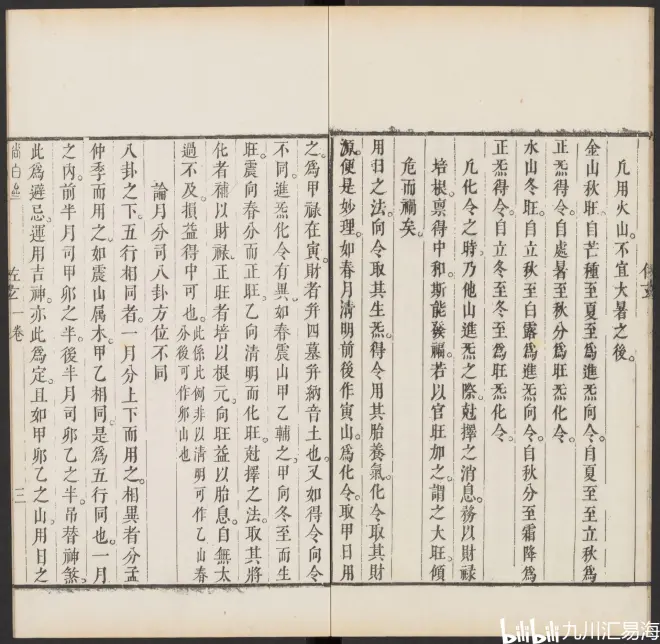 凡用火山。不宜大暑之後。
金山秋旺。自芒種至夏至爲進炁向令。自夏至至立秋爲
正炁得令。自處暑至秋分爲旺炁化令。
水山冬旺。自立秋至白露爲進炁向令。自秋分至霜降爲
正炁得令。自立冬至冬至爲旺炁化令。
凡化令之時。乃他山進炁之際。尅擇之消息。務以財祿
培根。禀得中和。斯能發福。若以官旺加之。謂之大旺。傾
危而禍矣。
用归之法。向令取其生炁。得令用其胎養氣。化令取其財
源。便是妙理。如春月清明前後作寅山。爲化令。取甲日用
之。爲甲祿在寅。財者幷四墓幷納音土也。又如得令向令
不同。進炁化令有異。如春震山甲乙輔之。甲向冬至而生
旺。震向春分而正旺。乙向清明而化旺。尅擇之法。取其將
化者補以財祿。正旺者培以根元。向旺益以胎息。自無太
過不及。損益得中可也。此係此例非以清明可作乙山春
分後可作卯山也
論月分司八卦方位不同
八卦之下。五行相同者。一月分上下而用之。相異者分孟
仲季而用之。如震山屬木。甲乙相同。是爲五行同也。一月
之内。前半月司甲卯之半。後半月司卯乙之半。吊替神煞。
此爲避忌。運用吉神。亦此爲定。且如甲卯乙之山。用日之
尙白齋
左玄一卷
三
九川汇易海
bilibili